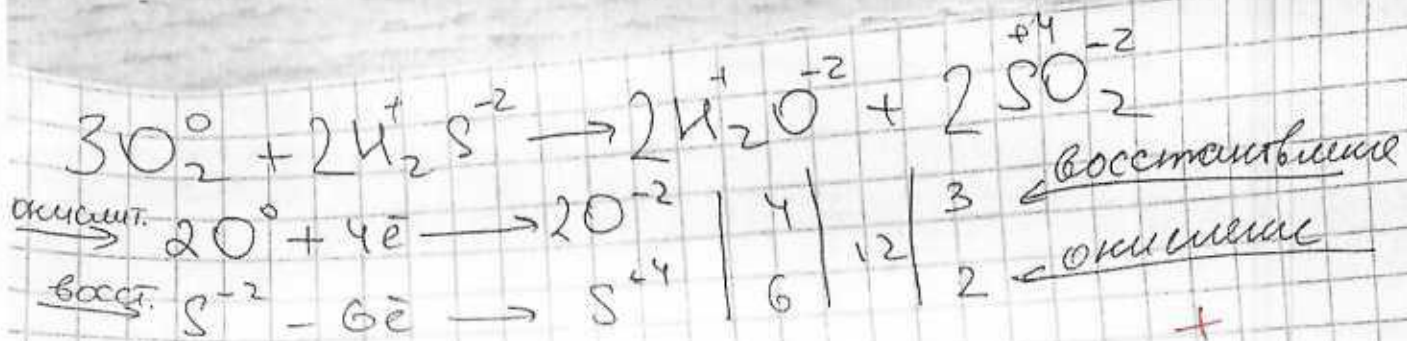 3O₂⁰ + 2H₂⁺S⁻² → 2H₂⁺O⁻² + 2S⁺⁴O₂⁻²
окислит. → 2O⁰ + 4ē → 2O⁻² | 4 | 12 | 3 ← восстановление
восст. → S⁻² - 6ē → S⁺⁴ | 6 | | 2 ← окисление
+